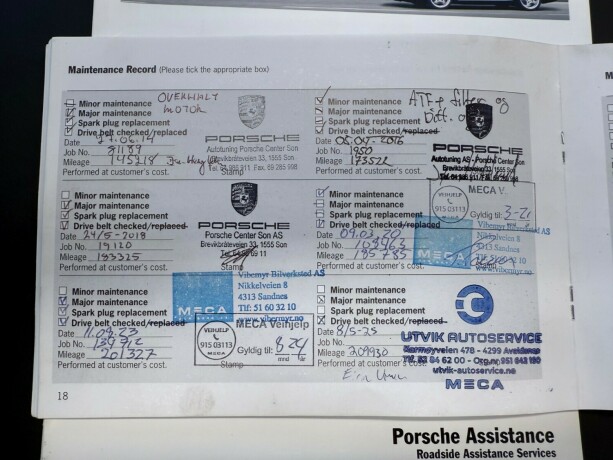 Maintenance Record (Please tick the appropriate box)
OVERHALT
MOTOR
Minor maintenance
Major maintenance
Spark plug replacement
Drive belt checked/replaced
Date 27.06.14
Job No. 91189
Mileage 145218
Performed at customer's cost.
Stamp
PORSCHE
Autotuning Porsche Center Son
Brevikbråteveien 33, 1555 Son
ATF + filter og
Diff. olje
Minor maintenance
Major maintenance
Spark plug replacement
Drive belt checked/replaced
Date 05.04-2016
Job No. 1950
Mileage 173522
Performed at customer's cost.
PORSCHE
Autotuning AS - Porsche Center Son
Brevikbråteveien 33, 1555 Son
Minor maintenance
Major maintenance
Spark plug replacement
Drive belt checked/replaced
Date 24/5-2018
Job No. 19120
Mileage 183325
Performed at customer's cost.
Stamp
PORSCHE
Porsche Center Son AS
Brevikbråteveien 33, 1555 Son
Minor maintenance
Major maintenance
Spark plug replacement
Drive belt checked/replaced
Date 09.03.20
Job No. 108463
Mileage 185785
Performed at customer's cost.
915 03113
MECA V
Gyldig til: 3-21
MECA
4313 Sandnes
Minor maintenance
Major maintenance
Spark plug replacement
Drive belt checked/replaced
Date 11.09.23
Job No.
Mileage 201327
Performed at customer's cost.
Stamp
MECA
Vibemyr Bilverksted AS
Nikkelveien 8
4313 Sandnes
Tlf: 51 60 32 10
www.vibemyr.no
VEIHJELP
915 03113
MECA
MECA Veihjelp
Gyldig til: 8 24
mnd år
Minor maintenance
Major maintenance
Spark plug replacement
Drive belt checked/replaced
Date 8/5-25
Job No.
Mileage 209930
Performed at customer's cost.
UTVIK AUTOSERVICE
Karmøyveien 478 - 4299 Avaldsnes
utvik-autoservice.no
MECA
18
Porsche Assistance
Roadside Assistance Services